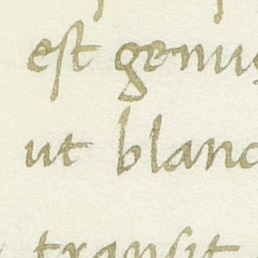 est genus
ut blanc
transit